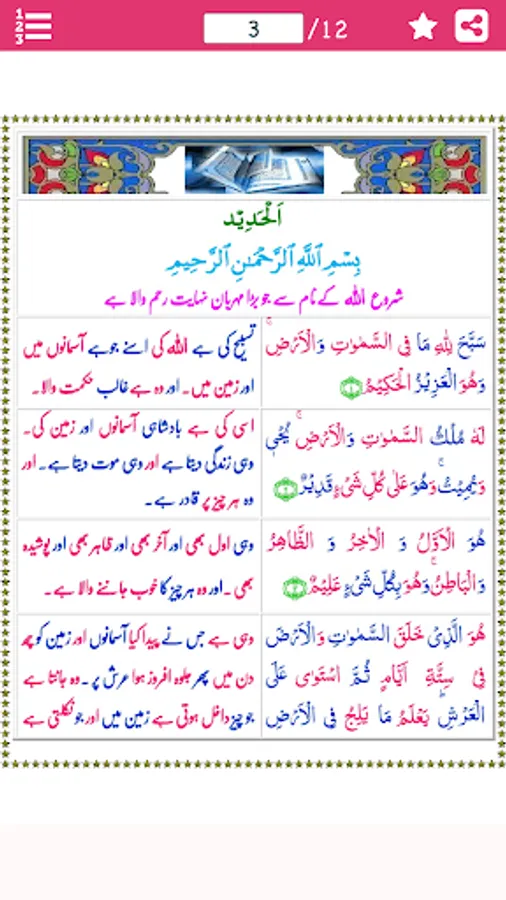 1
2
3
3
/12
اَلْحَدِيْد
بِسْمِ ٱللَّهِ ٱلرَّحْمَـٰنِ ٱلرَّحِيمِ
شروع اللہ کے نام سے جو بڑا مہربان نہایت رحم والا ہے
سَبَّحَ لِلّٰهِ مَا فِى السَّمٰوٰتِ وَالْاَرْضِ ۚ
وَهُوَ الْعَزِيْزُ الْحَكِيْمُ ۝۱
تسبیح کی ہے اللہ کی اسنے جو ہے آسمانوں میں
اور زمین میں۔ اور وہ ہے غالب حکمت والا۔
لَهٗ مُلْكُ السَّمٰوٰتِ وَالْاَرْضِ ۚ يُحْىٖ
وَيُمِيْتُ ۚ وَهُوَ عَلٰى كُلِّ شَىْءٍ قَدِيْرٌ ۝۲
اسی کی ہے بادشاہی آسمانوں اور زمین کی۔
وہی زندگی دیتا ہے اور وہی موت دیتا ہے۔ اور
وہ ہر چیز پر قادر ہے۔
هُوَ الْاَوَّلُ وَ الْاٰخِرُ وَ الظَّاهِرُ
وَالْبَاطِنُ ۚ وَهُوَ بِكُلِّ شَىْءٍ عَلِيْمٌ ۝۳
وہی اول بھی اور آخر بھی اور ظاہر بھی اور پوشیدہ
بھی ۔اور وہ ہر چیز کا خوب جاننے والا ہے۔
هُوَ الَّذِىْ خَلَقَ السَّمٰوٰتِ وَالْاَرْضَ
فِىْ سِتَّةِ اَيَّامٍ ثُمَّ اسْتَوٰى عَلَى
الْعَرْشِ ؕ يَعْلَمُ مَا يَلِجُ فِى الْاَرْضِ
وہی ہے جس نے پیدا کیا آسمانوں اور زمین کو چھ
دن میں پھر جلوہ افروز ہوا عرش پر ۔وہ جانتا ہے
جو چیز داخل ہوتی ہے زمین میں اور جو نکلتی ہے